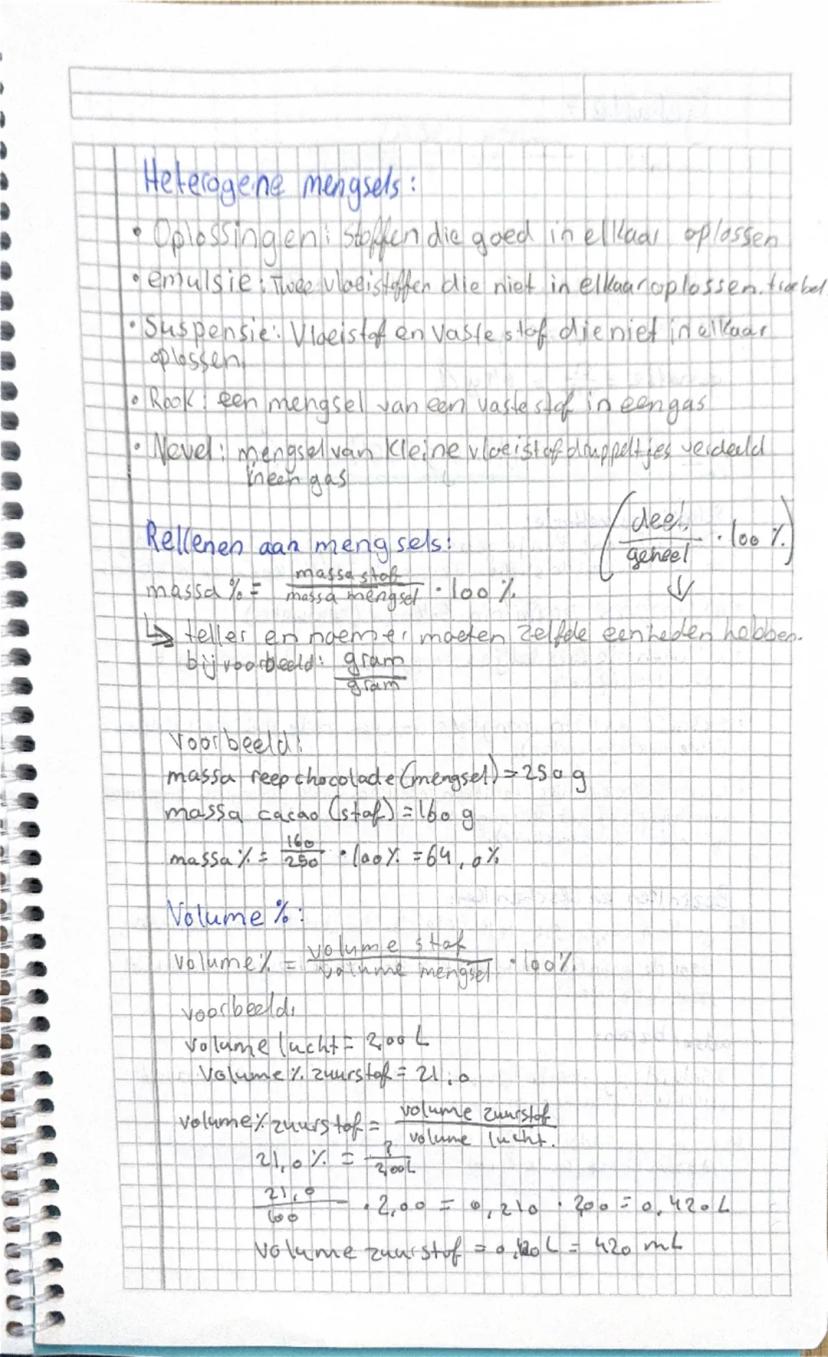 Heterogene mengsels:
• Oplossingen: stoffen die goed in elkaar oplossen
• emulsie: Twee vloeistoffen die niet in elkaar oplossen. troebel
• Suspensie: Vloeistof en vaste stof die niet in elkaar
oplossen.
• Rook: een mengsel van een vaste stof in een gas
• Nevel: mengsel van kleine vloeistofdruppeltjes verdeeld
in een gas
(deel / geheel · 100 %)
↓
Rekenen aan mengsels:
massa % = massa stof / massa mengsel · 100 %
↳ teller en noemer moeten zelfde eenheden hebben.
bijvoorbeeld: gram / gram
voorbeeld:
massa reep chocolade (mengsel) = 250 g
massa cacao (stof) = 160 g
massa % = 160 / 250 · 100 % = 64,0 %
Volume %:
volume % = volume stof / volume mengsel · 100 %
voorbeeld:
volume lucht = 2,00 L
Volume % zuurstof = 21,0
volume % zuurstof = volume zuurstof / volume lucht.
21,0 % = ? / 2,00 L
21,0 / 100 · 2,00 = 0,210 · 200 = 0,420 L
Volume zuurstof = 0,420 L = 420 mL